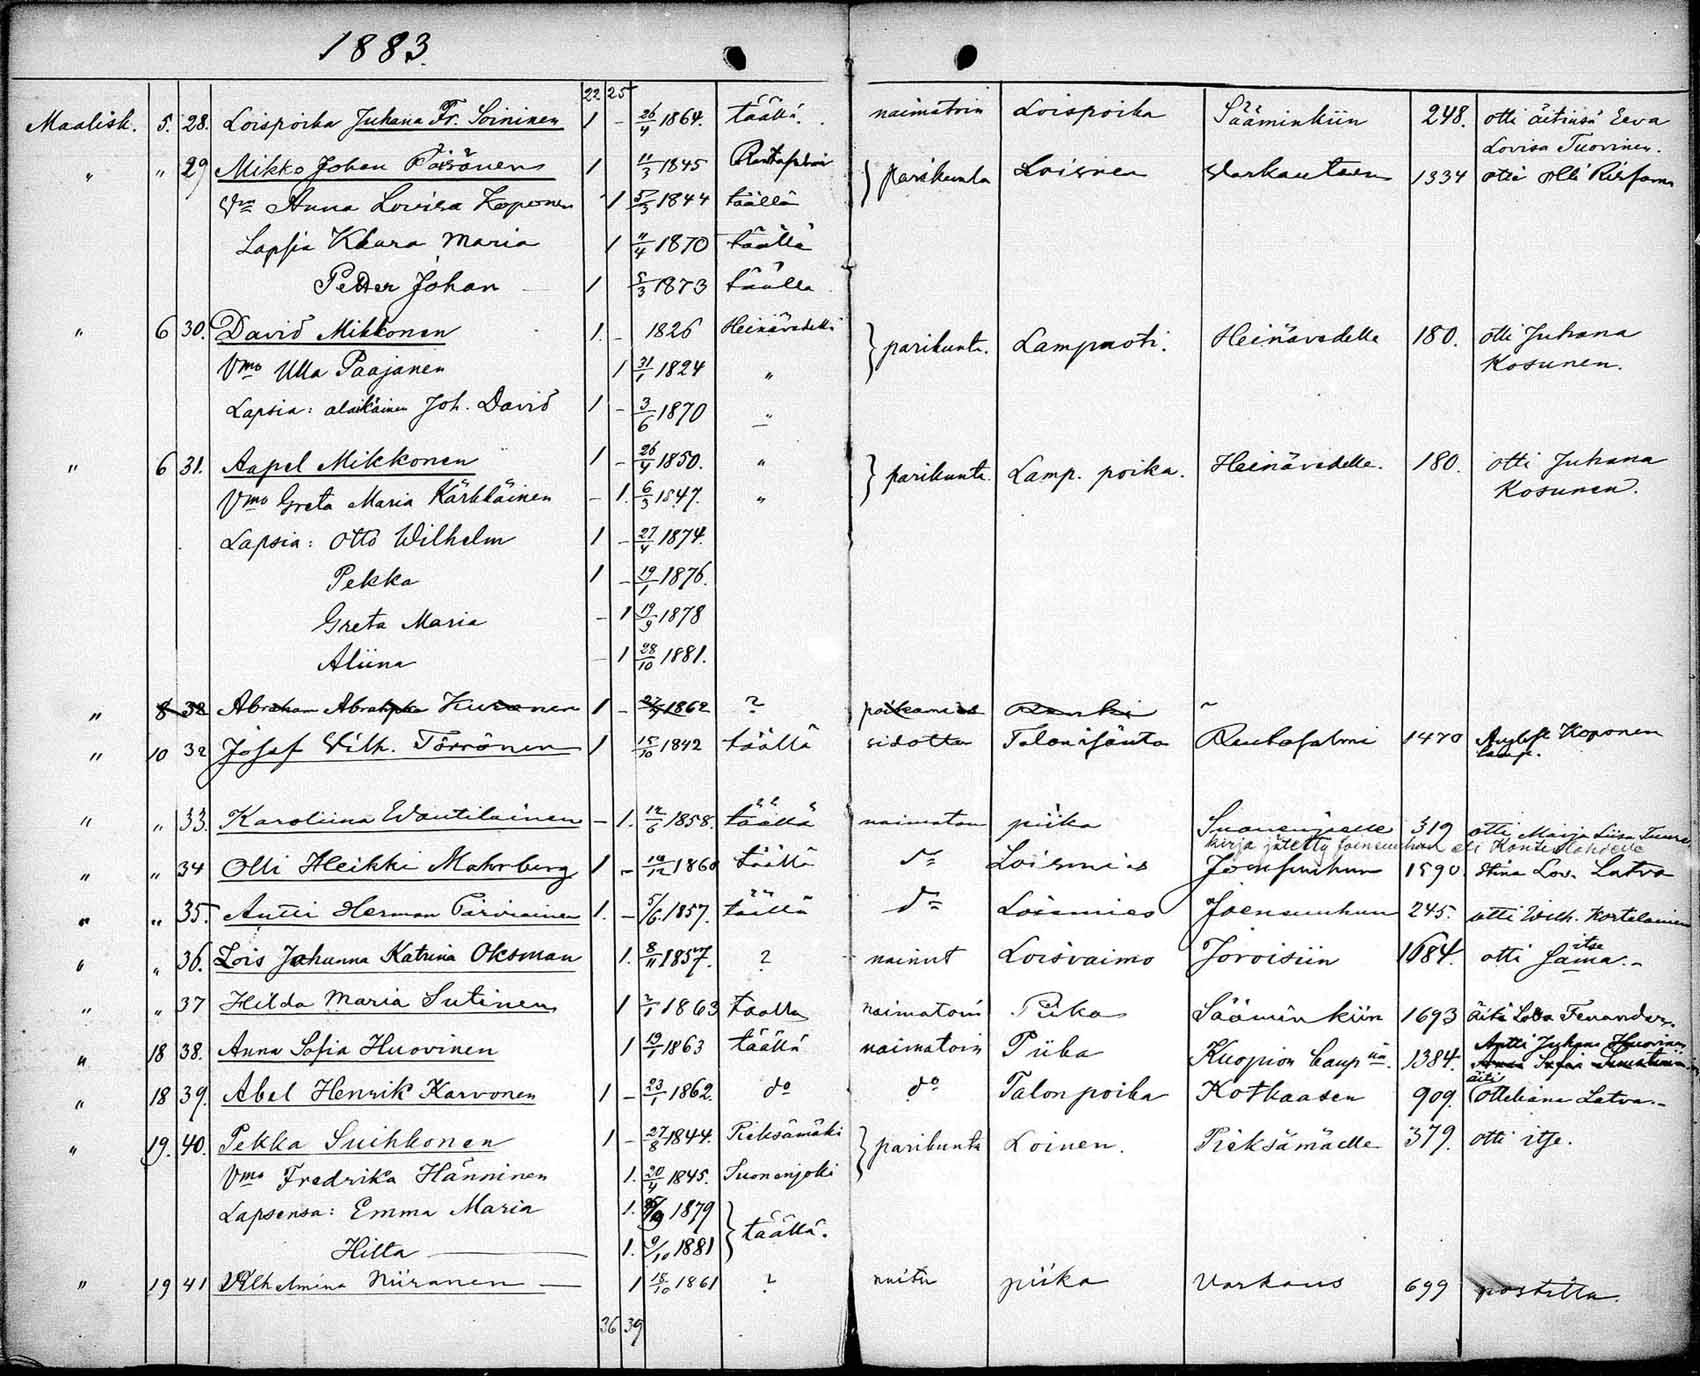 1883.
22 25
Maalisk. 5. 28. Loispoika Juhana Fr. Soininen 1 - 26/4 1864. täällä. naimatoin Loispoika Sääminkiin 248. otti äitinsä Eeva
Lovisa Tuovinen.
" " 29 Mikko Johan 1 11/3 1845 parikunta Loisnen Varkauteen 1334 otti Olli
Vmo Anna Lovisa Koponen 1 5/3 1844 täällä
Lapsia Klara Maria 1 11/4 1870 täällä
Petter Johan 1 5/3 1873 täällä
" 6 30. David Mikkonen 1. - 1826 Heinävedellä parikunta. Lampuoti. Heinävedelle 180. otti Juhana
Vmo Ulla Paajanen 1 31/1 1824 " Kosunen.
Lapsia: alaikäinen Joh. David 1 - 3/6 1870 "
" 6 31. Aapel Mikkonen 1 - 26/4 1850. " parikunta Lamp. poika. Heinävedelle. 180. otti Juhana
Vmo Greta Maria Kärkkäinen - 1. 6/3 1847. " Kosunen.
Lapsia: Otto Wilhelm 1 - 27/4 1874.
Pekka 1 - 19/1 1876.
Greta Maria - 1 19/9 1878
Aliina - 1 28/10 1881.
" 8 32 Abraham Kuronen 1 - 1862 ? poikamies Renki
" 10 32 Josef Vilh. Törrönen 1 15/10 1842 täällä sidottu Talonisäntä Rantasalmi 1470 Koponen
lamp.
" " 33. Karoliina Wäntiläinen - 1. 12/6 1858. täällä naimaton piika Suonenjoelle 319 otti Maija Liisa
kirja jätetty Joensuuhun eli Kontiolahdelle
" " 34 Olli Heikki Mahrberg 1 - 12 1860 täällä do Loismies Joensuuhun 1590. Stina Lov. Latva
" " 35. Antti Herman Parviainen 1. - 5/6 1857. täällä do Loismies Joensuuhun 245. otti Wilh. Kortelainen
" " 36. Lois Johanna Katrina Oksman 1. 8/11 1857. ? nainut Loisvaimo Joroisiin 1684. otti itse
sama.-
" " 37 Hilda Maria Sutinen 1 1863 täällä naimatoin Piika Sääminkiin 1693 äiti
" 18 38. Anna Sofia Huovinen 1 19/1 1863 täällä naimatoin Piika Kuopion kaup iin 1384. Antti Juhana Huovinen
" 18 39. Abel Henrik Karvonen 1 - 23/1 1862. do do Talon poika Kotkaasen 909. äiti
Ottiliana Latva.-
" 19. 40. Pekka Suihkonen 1 - 27/8 1844. Pieksämäki parikunta Loinen. Pieksämäelle 379. otti itse.
Vmo Fredrika Hänninen 1. 20/4 1845. Suonenjoki
Lapsensa: Emma Maria 1. 1879 täällä.
Hilta 1. 9/10 1881
" 19 41 Vilhelmina Niiranen 1 18/10 1861 ? naitu piika Varkaus 699 postilla.
36 39